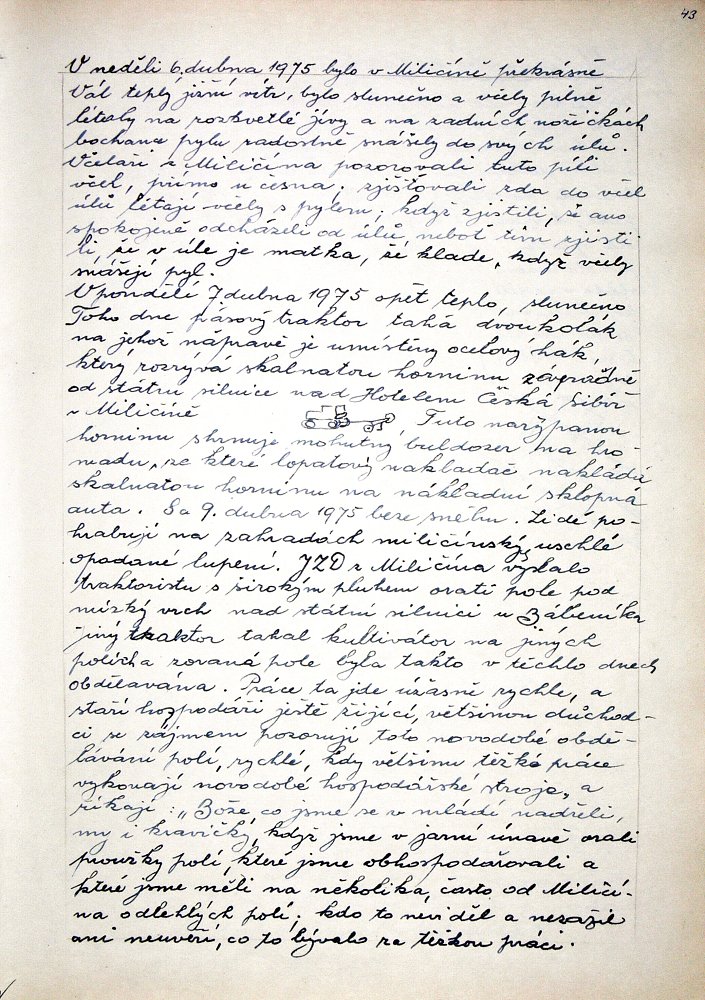 43
V neděli 6. dubna 1975 bylo v Miličíně překrásně
Vál teplý jižní vítr, bylo slunečno a včely pilně
létaly na rozkvetlé jívy a na zadních nožičkách
bochana pylu radostně snášely do svých úlů.
Včelaři z Miličína pozorovali tuto píli
včel, přímo u česna; zjišťovali zda do včel
úlů létají včely s pylem; když zjistili, že ano
spokojeně odcházeli od úlů neboť tím zjisti
li, že v úle je matka, že klade, když včely
snášejí pyl.
V pondělí 7. dubna 1975 opět teplo, slunečno
Toho dne pásový traktor tahá dvoukolák
na jehož nápravě je umístěny ocelový hák,
který rozrývá skalnatou horninu
od státní silnice nad Hotelem Česká Sibiř
v Miličíně Tuto narýpanou
horninu shrnuje mohutný buldozer na hro-
madu, ze které lopatový nakladač nakládá
skalnatou horninu na nákladní sklopná
auta. Sa 9. dubna 1975 beze sněhu. Lidé po-
hrabují na zahradách miličínský uschlé
opadané lupení. JZD z Miličína vyslalo
traktoristu s širokým pluhem orati pole pod
nízký vrch nad státní silnicí u Zábeníka
jiný traktor tahal kultivátor na jiných
polích a zoraná pole byla takto v těchto dnech
obdělavána. Práce ta jde úžasně rychle, a
staří hospodáři ještě žijící, většinou důchod-
ci se zájmem pozorují toto novodobé obdě-
lávání polí, rychlé, kdy většinu těžké práce
vykonají novodobé hospodářské stroje, a
říkají: „Bože, co jsme se v mládí nadřeli,
my i kravičky, když jsme v jarní únavě orali
proužky polí, které jsme obhospodařovali a
které jsme měli na několika, často od Miličí-
na odlehlých polí; kdo to neviděl a nezažil
ani neuvěří, co to bývalo za těžkou práci.